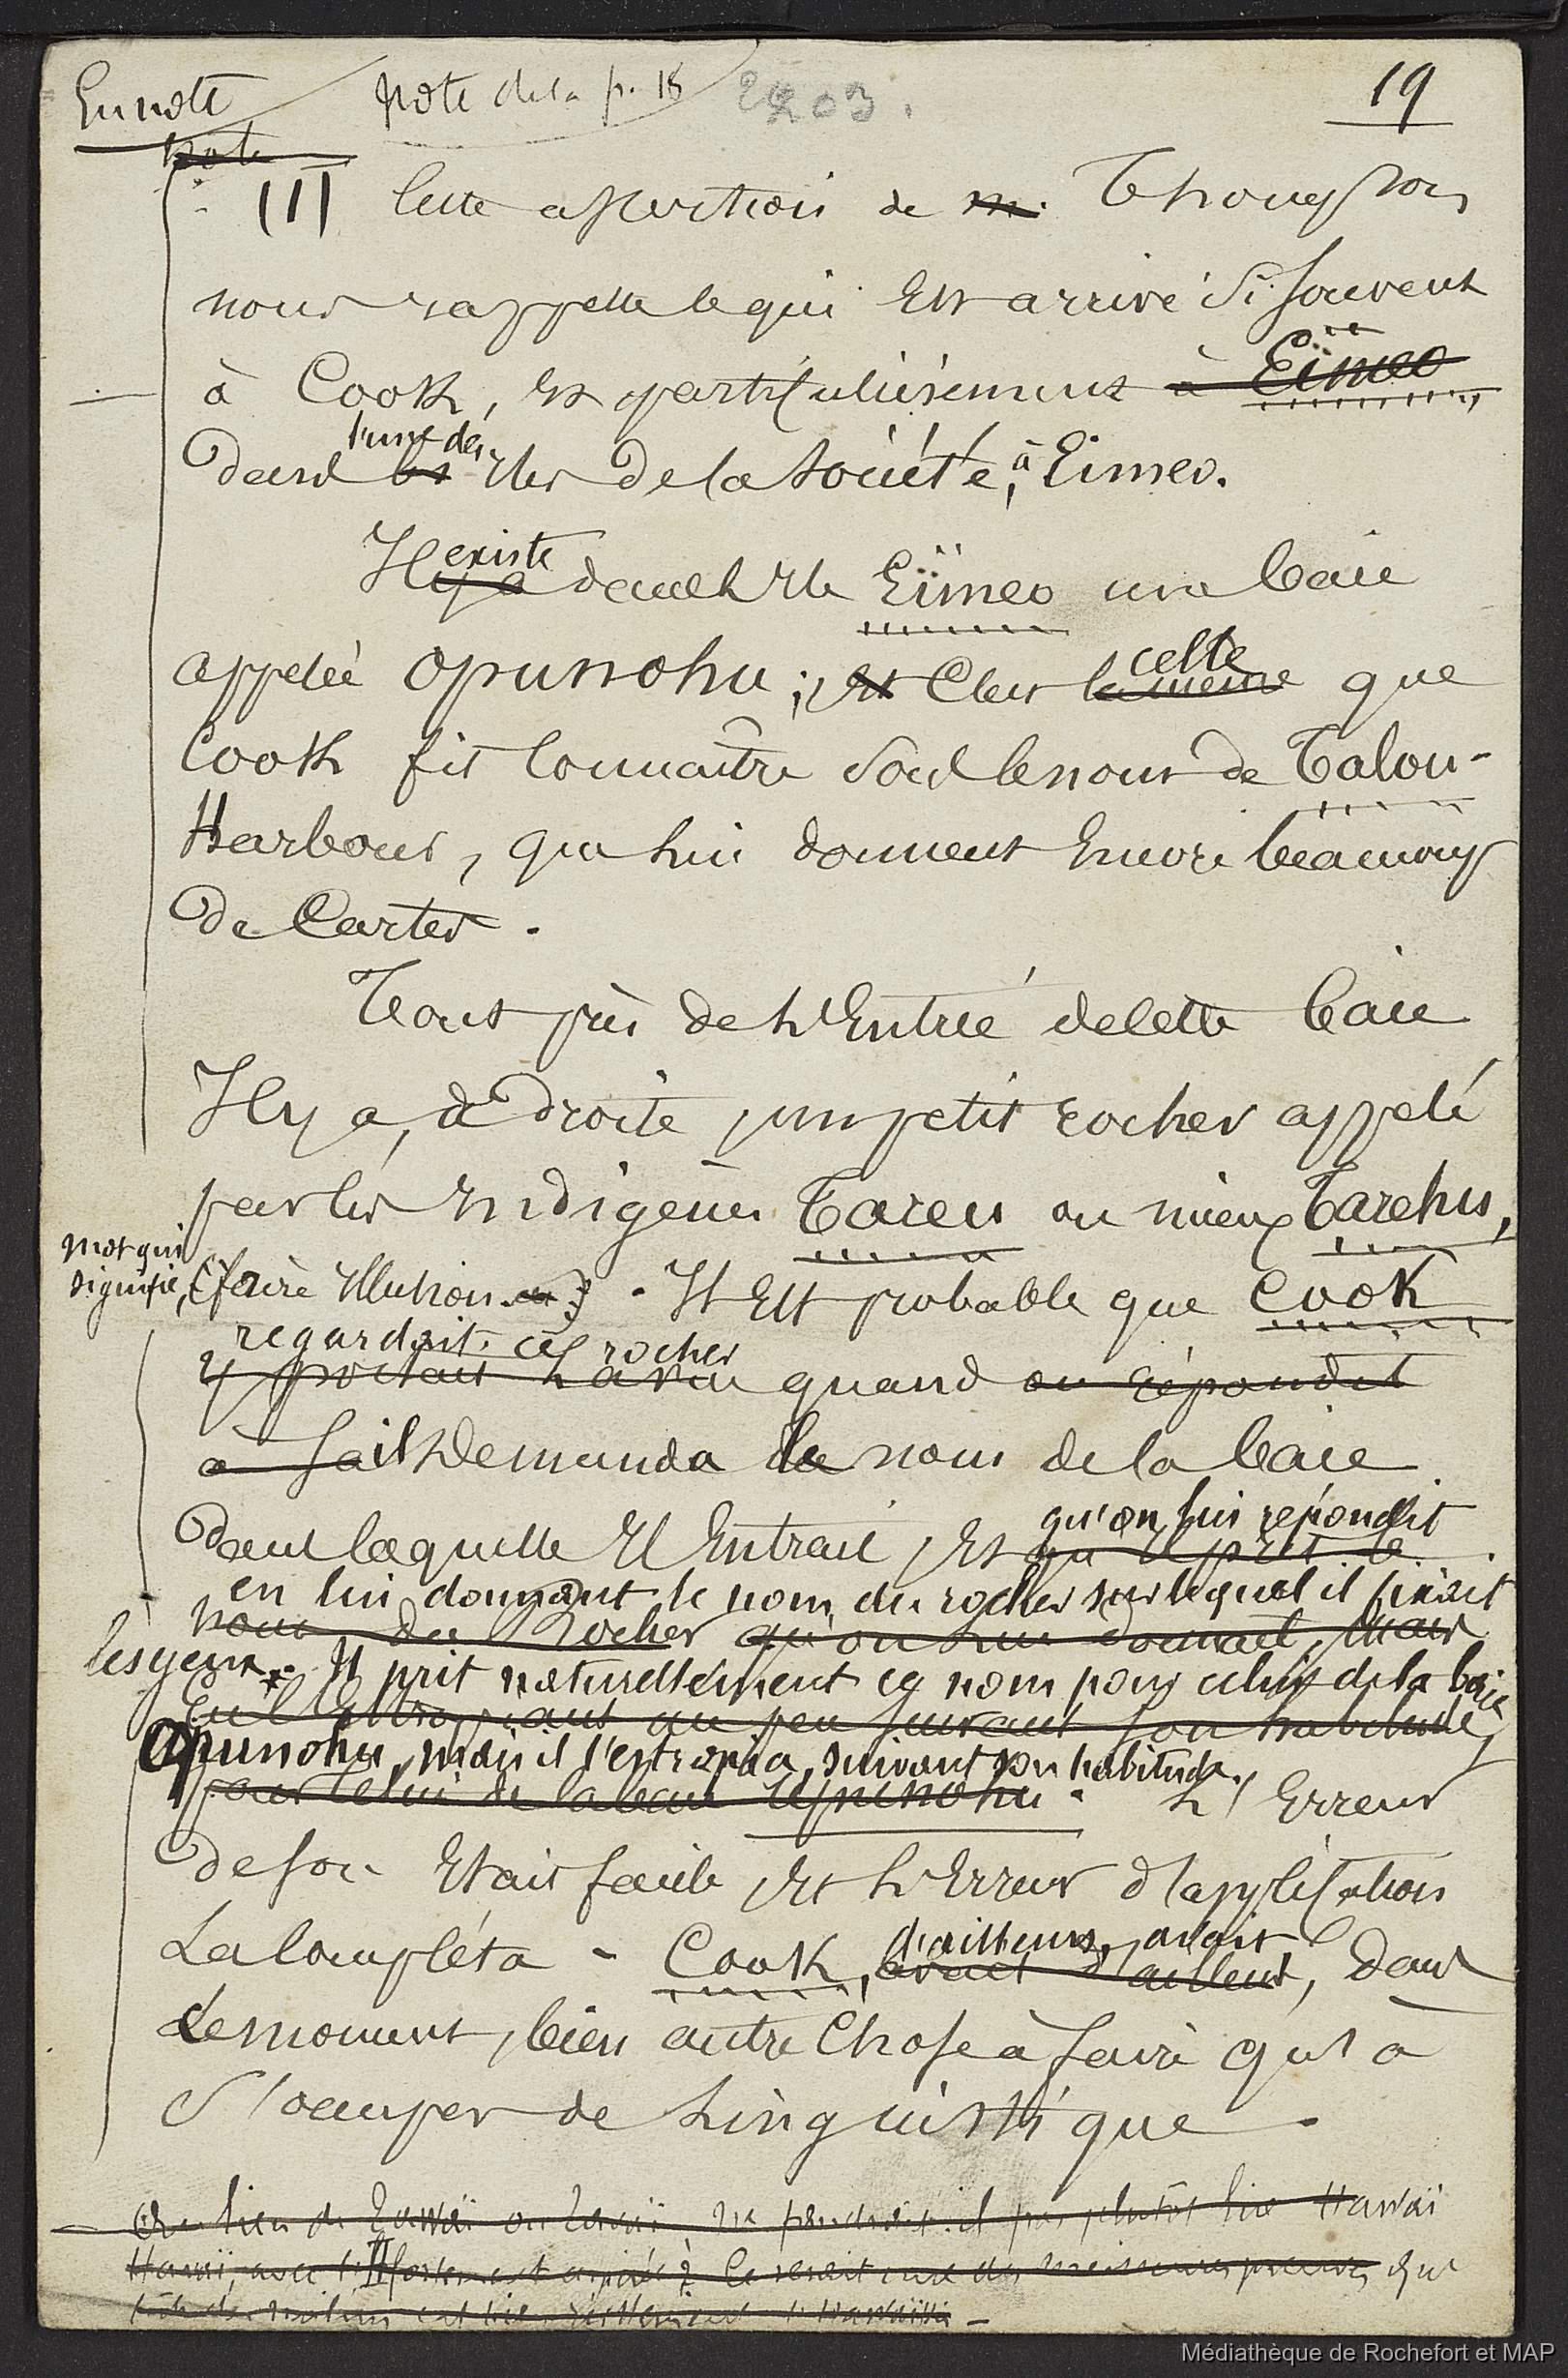 En note
note de la p. 18
2203.
19
note
(1) Cette assertion de m. Thompson
nous rappelle ce qui Est arrivé Si Souvent
à Cook, Et particulièrement à Eïmeo
l'une des
dans les Iles de la Société, à Eimeo.
existe
Il y a dans l'Ile Eïmeo une baie
celle
appelée Opunohu ; Et C'est la même que
Cook fit Connaître Sous le nom de Talou-
Harbour, que lui donnent Encore beaucoup
de Cartes.
Tout près de l'Entrée de cette baie
Il y a, à droite, un petit rocher appelé
par les Indigènes Tareu ou mieux Tarehu,
mot qui
signifie, (faire Illusion). Il Est probable que Cook
regardait ce rocher
y portait la vue quand on répondit
à sa il demanda le nom de la baie
qu'on lui répondit
dans laquelle Il Entrait, Et qu'il prit le
en lui donnant le nom du rocher sur lequel il fixait
nom du Rocher qu'on lui donnait, mais
les yeux. Il prit naturellement ce nom pour celui de la baie
En l'Estropiant un peu suivant son habitude,
Opunohu, mais il l'estropia, suivant son habitude.
pour celui de la baie Opunohu. L'Erreur
de son Etait facile, Et l'Erreur d'application
La Compléta - Cook, avait d'ailleurs, dans
d'ailleurs, avait
Le moment, bien autre Chose à faire qu'à
S'occuper de Linguistique.
Au lieu de Zawaï ou ne faudrait-il pas plutôt lire Hawaï
Hawaï, avec l'H fortement aspirée ? Ce serait une des meilleures preuves que
Médiathèque de Rochefort et MAP